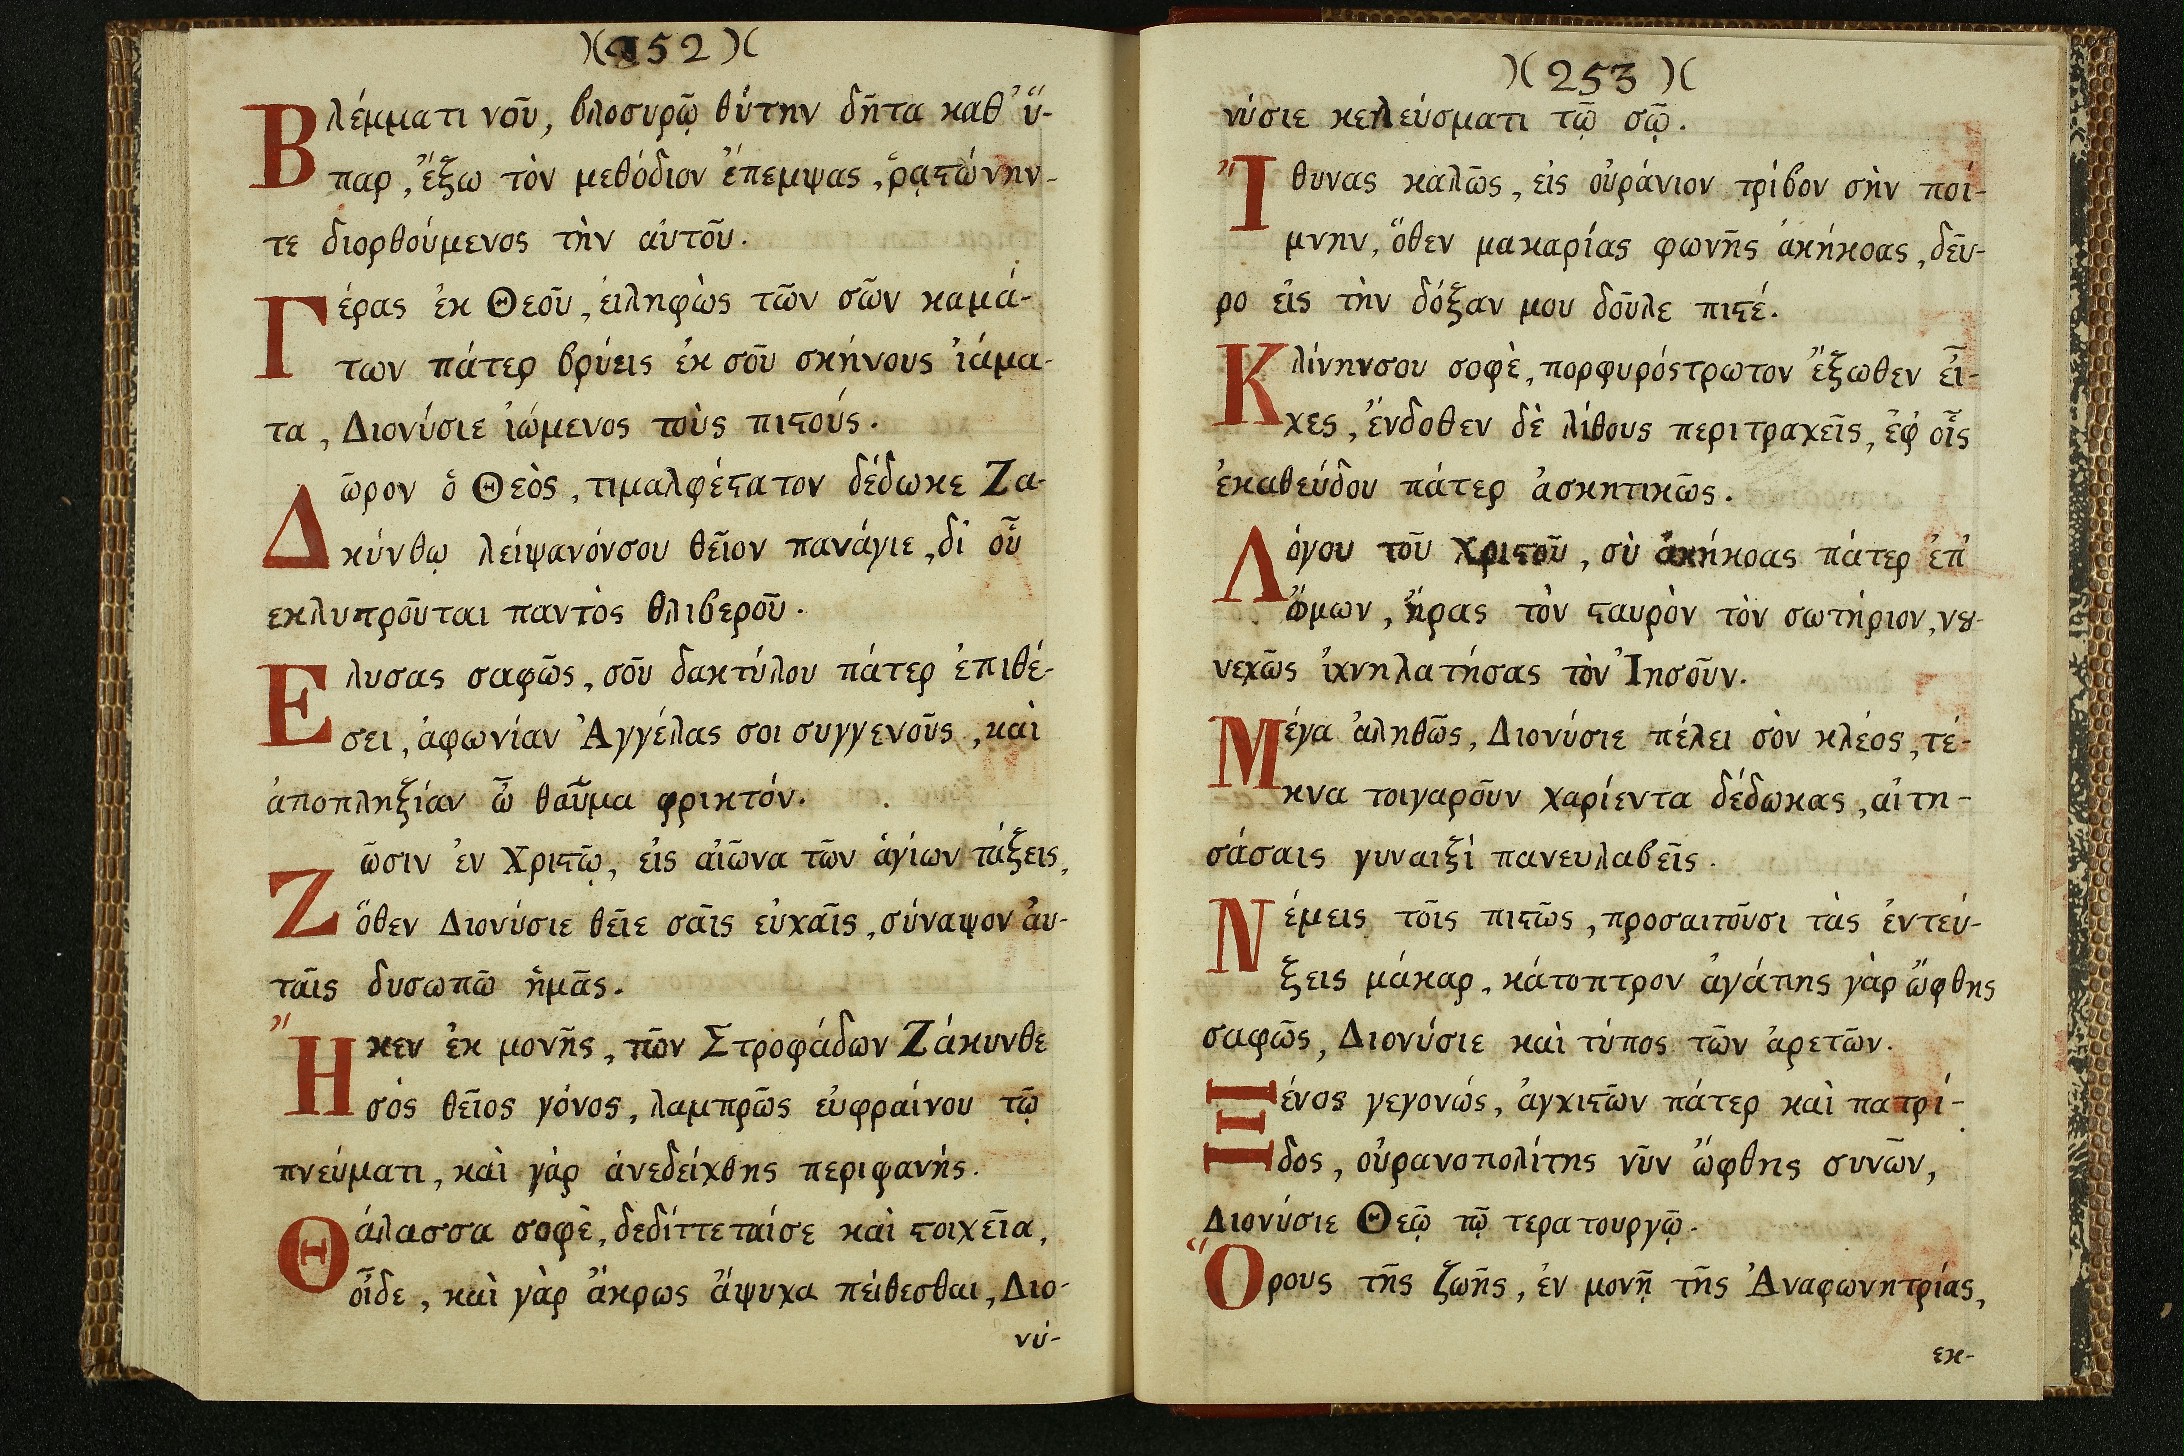 )(252)(
Βλέμματι νοῦ, βλοσυρῷ θύτην δῆτα καθ' ὕ-
παρ, ἔξω τὸν μεθόδιον ἔπεμψας, ῥᾳϛώνην-
τε διορθούμενος τὴν αὐτοῦ.
Γέρας ἐκ Θεοῦ, εἰληφὼς τῶν σῶν καμά-
των πάτερ βρύεις ἐκ σοῦ σκήνους ἰάμα-
τα, Διονύσιε ἰώμενος τοὺς πιϛούς.
Δῶρον ὁ Θεὸς, τιμαλφέϛατον δέδωκε Ζα-
κύνθῳ λείψανόνσου θεῖον πανάγιε, δι' οὗ
εκλυτροῦται παντὸς θλιβεροῦ.
Ελυσας σαφῶς, σοῦ δακτύλου πάτερ ἐπιθέ-
σει, ἀφωνίαν Ἀγγέλας σοι συγγενοῦς, καὶ
ἀποπληξίαν ὦ θαῦμα φρικτόν.
Ζῶσιν ἐν Χριϛῷ, εἰς αἰῶνα τῶν ἁγίων τάξεις,
ὅθεν Διονύσιε θεῖε σαῖς εὐχαῖς, σύναψον ἀυ-
ταῖς δυσωπῶ ἡμᾶς.
Ἧκεν ἐκ μονῆς, τῶν Στροφάδων Ζάκυνθε
σὸς θεῖος γόνος, λαμπρῶς εὐφραίνου τῷ
πνεύματι, καὶ γὰρ ἀνεδείχθης περιφανής.
Θάλασσα σοφὲ, δεδίττεταίσε καὶ ϛοιχεῖα,
οἶδε, καὶ γὰρ ἄκρως ἄψυχα πείθεσθαι, Διο-
νύ-
)(253)(
νύσιε κελεύσματι τῷ σῷ.
Ἴθυνας καλῶς, εἰς οὐράνιον τρίβον σὴν ποί-
μνην, ὅθεν μακαρίας φωνῆς ἀκήκοας, δεῦ-
ρο εἰς τὴν δόξαν μου δοῦλε πιϛέ.
Κλίνηνσου σοφὲ, πορφυρόϛτρωτον ἔξωθεν εἶ-
χες, ἔνδοθεν δὲ λίθους περιτραχεῖς, ἐφ' οἷς
ἐκαθεύδου πάτερ ἀσκητικῶς.
Λόγου τοῦ Χριϛοῦ, σὺ ἀκήκοας πάτερ ἐπ'
ὤμων, ἤρας τὸν ϛαυρὸν τὸν σωτήριον, νȣ-
νεχῶς ἰχνηλατήσας τὸν Ἰησοῦν.
Μέγα ἀληθῶς, Διονύσιε πέλει σὸν κλέος, τέ-
κνα τοιγαροῦν χαρίεντα δέδωκας, αἰτη-
σάσαις γυναιξὶ πανευλαβεῖς.
Νέμεις τοῖς πιϛῶς, προσαιτοῦσι τὰς ἐντεύ-
ξεις μάκαρ, κάτοπτρον ἀγάπης γὰρ ὤφθης
σαφῶς, Διονύσιε καὶ τύπος τῶν ἀρετῶν.
Ξένος γεγονώς, ἀγχιϛῶν πάτερ καὶ πατρί-
δος, οὐρανοπολίτης νῦν ὤφθης συνῶν,
Διονύσιε Θεῷ τῷ τερατουργῷ.
Ὅρους τῆς ζωῆς, ἐν μονῇ τῆς Ἀναφωνητρίας,
εκ-